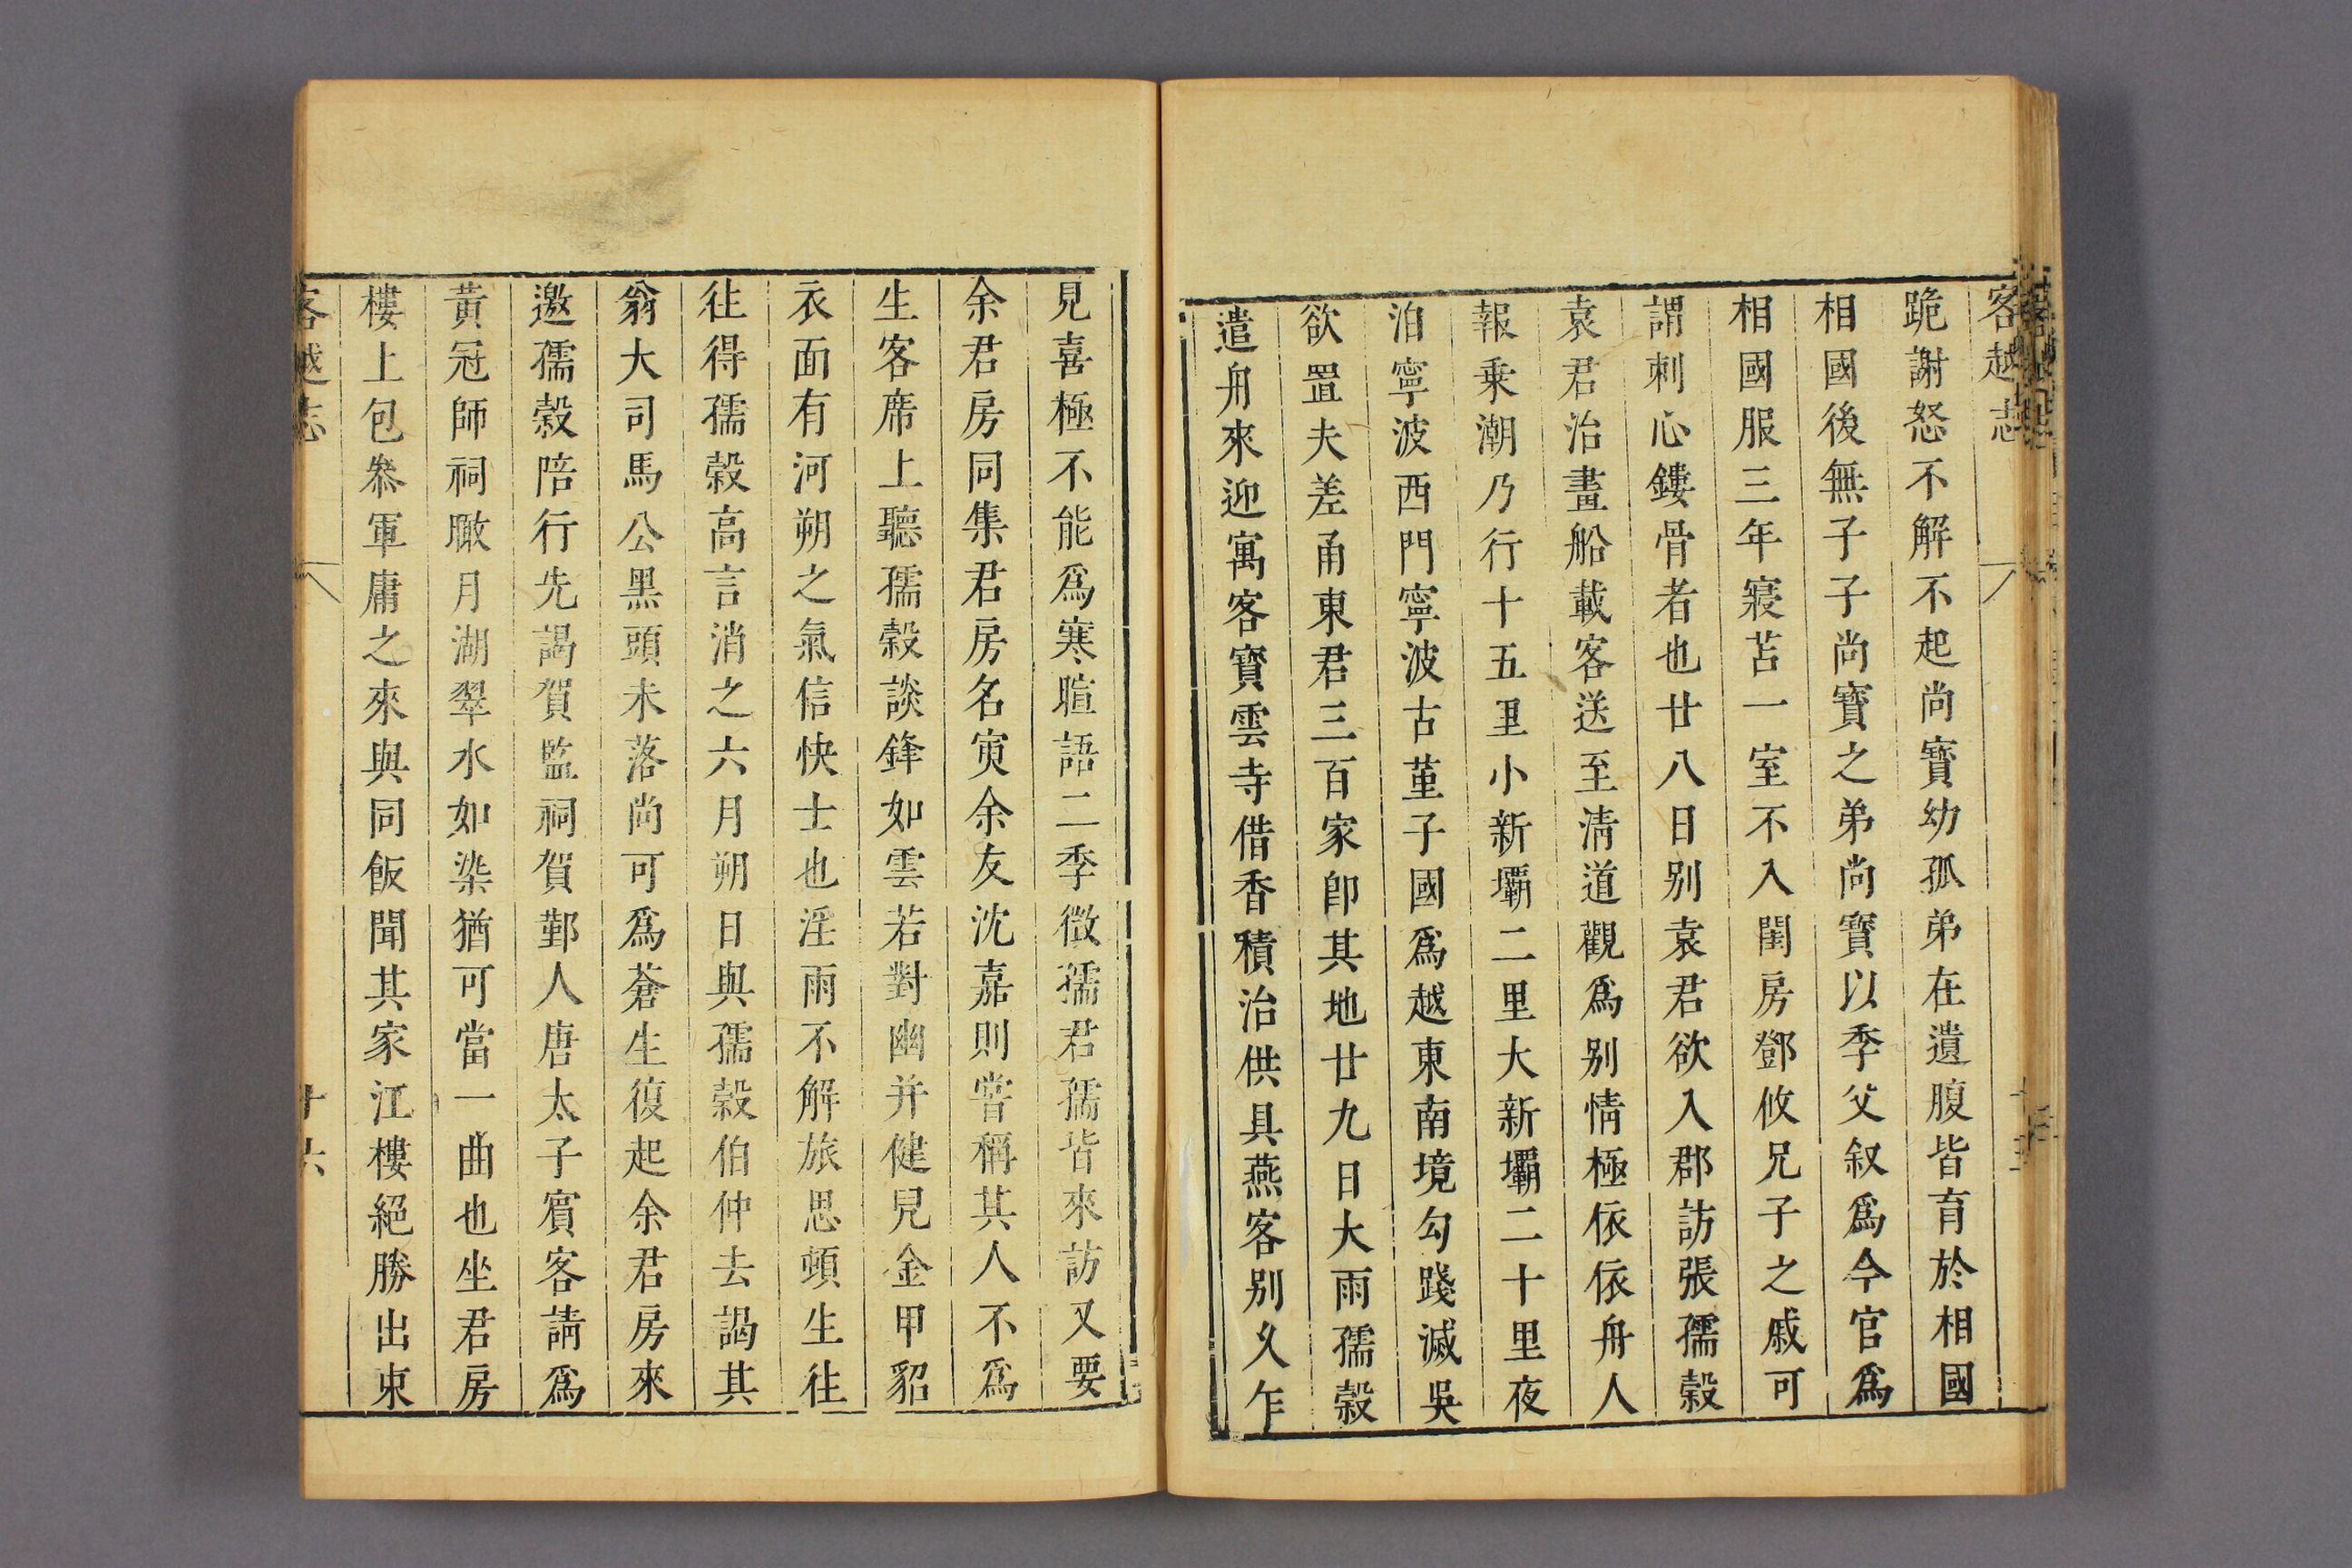 客越志
跪謝怒不解不起尚寶幼孤弟在遺腹皆育於相國
相國後無子子尚寶之弟尚寶以季父叙爲今官爲
相國服三年寢苫一室不入閨房鄧攸兄子之戚可
謂刺心鏤骨者也廿八日别袁君欲入郡訪張孺穀
袁君治畫船載客送至清道觀爲别情極依依舟人
報乗潮乃行十五里小新壩二里大新壩二十里夜
泊寧波西門寧波古堇子國爲越東南境勾踐滅吳
欲置夫差甬東君三百家卽其地廿九日大雨孺穀
遣舟來迎寓客寶雲寺借香積治供具燕客别乆乍
見喜極不能爲寒暄語二季徴孺君孺皆來訪又要
余君房同集君房名寅余友沈嘉則嘗稱其人不爲
生客席上聽孺穀談鋒如雲若對幽并健兒金甲貂
衣面有河朔之氣信快士也淫雨不解旅思頓生往
往得孺穀高言消之六月朔日與孺穀伯仲去謁其
翁大司馬公黑頭未落尚可爲蒼生復起余君房來
邀孺穀陪行先謁賀監祠賀鄞人唐太子賔客請爲
黃冠師祠瞰月湖翠水如染猶可當一曲也坐君房
樓上包叅軍庸之來與同飯聞其家江樓絕勝出東
客越志
十六